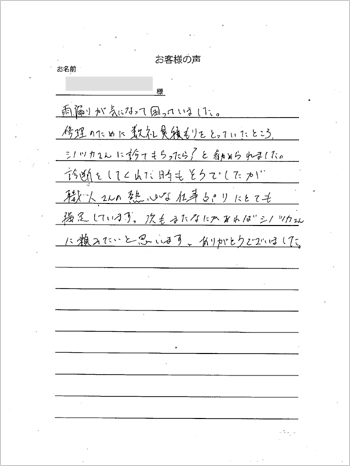 お客様の声
お名前
様
雨漏りが気になって困っていました。
修理のために数社見積もりをとっていたところ、
シノヅカさんに診てもらったら？と勧められました。
診断をしてくれた時もそうでしたが
職人さんの熱心な仕事ぶりにとても
満足しています。次もまたなにかあればシノヅカさん
に頼みたいと思います。ありがとうございました。